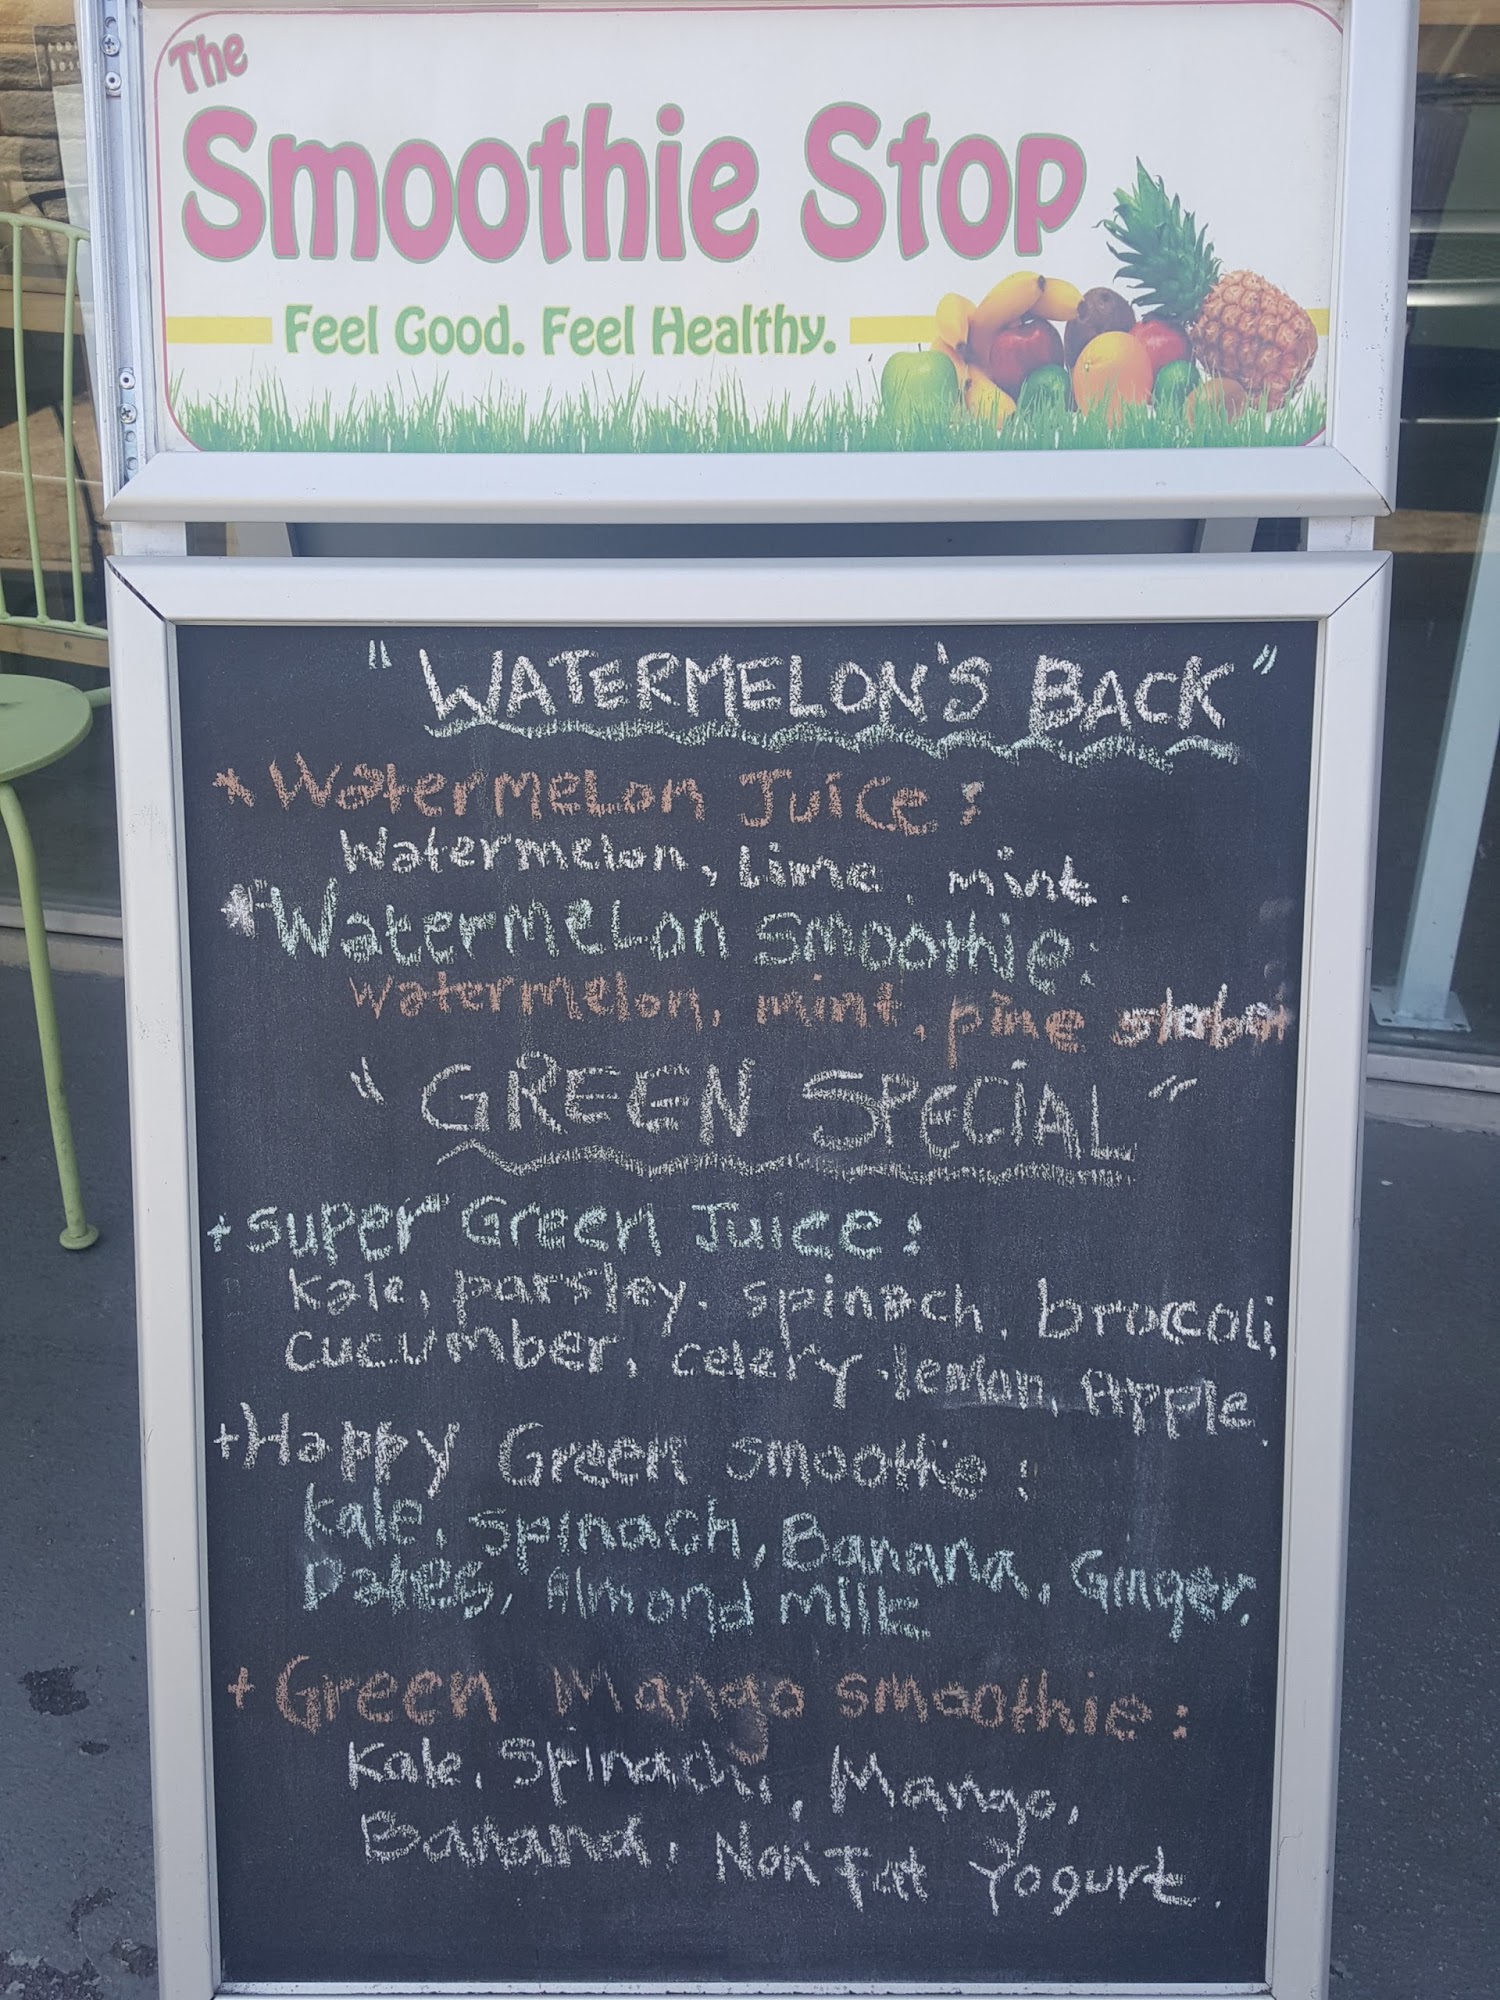 The
Smoothie Stop
Feel Good. Feel Healthy.
"WATERMELON'S BACK"
* Watermelon Juice:
Watermelon, Lime, mint.
* Watermelon smoothie:
watermelon, mint, pine sherbet
"GREEN SPECIAL"
+ Super Green Juice:
Kale, parsley, spinach, broccoli,
cucumber, celery, lemon, Apple.
+ Happy Green smoothie:
Kale, Spinach, Banana, Ginger,
Dates, Almond milk
+ Green Mango smoothie:
Kale, Spinach, Mango,
Banana, Non Fat Yogurt.